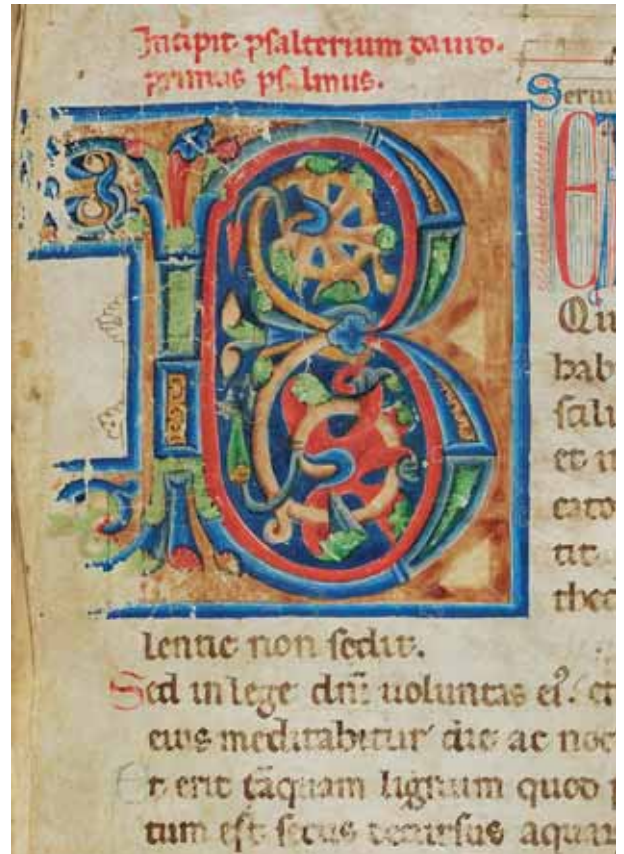 Incipit psalterium dauid.
primus psalmus.
B
Seru
E
Qu
hab
salu
et in
cato
tit
thed
lentie non sedit.
Sed in lege dn̄i uoluntas ei᾽. et
eius meditabitur die ac noc
Et erit tāquam lignum quod p
tum est secus decursus aquar